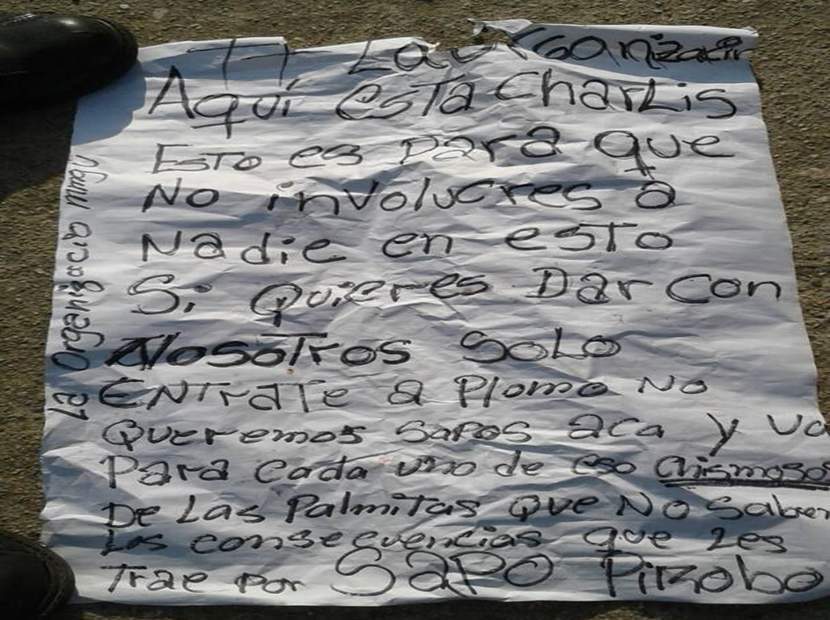 La organizacir
Aqui esta CharLis
ESTO es para que
No involucres a
Nadie en esTo
Si Quieres Dar con
NosoTros SoLo
ENTraTe a Plomo No
Queremos Sapos aca y va
Para cada uno de eso chismosos
De Las PalmiTas Que No Saben
Los consecuencias que Les
Trae por SaPO Pirobo
La Organizacio